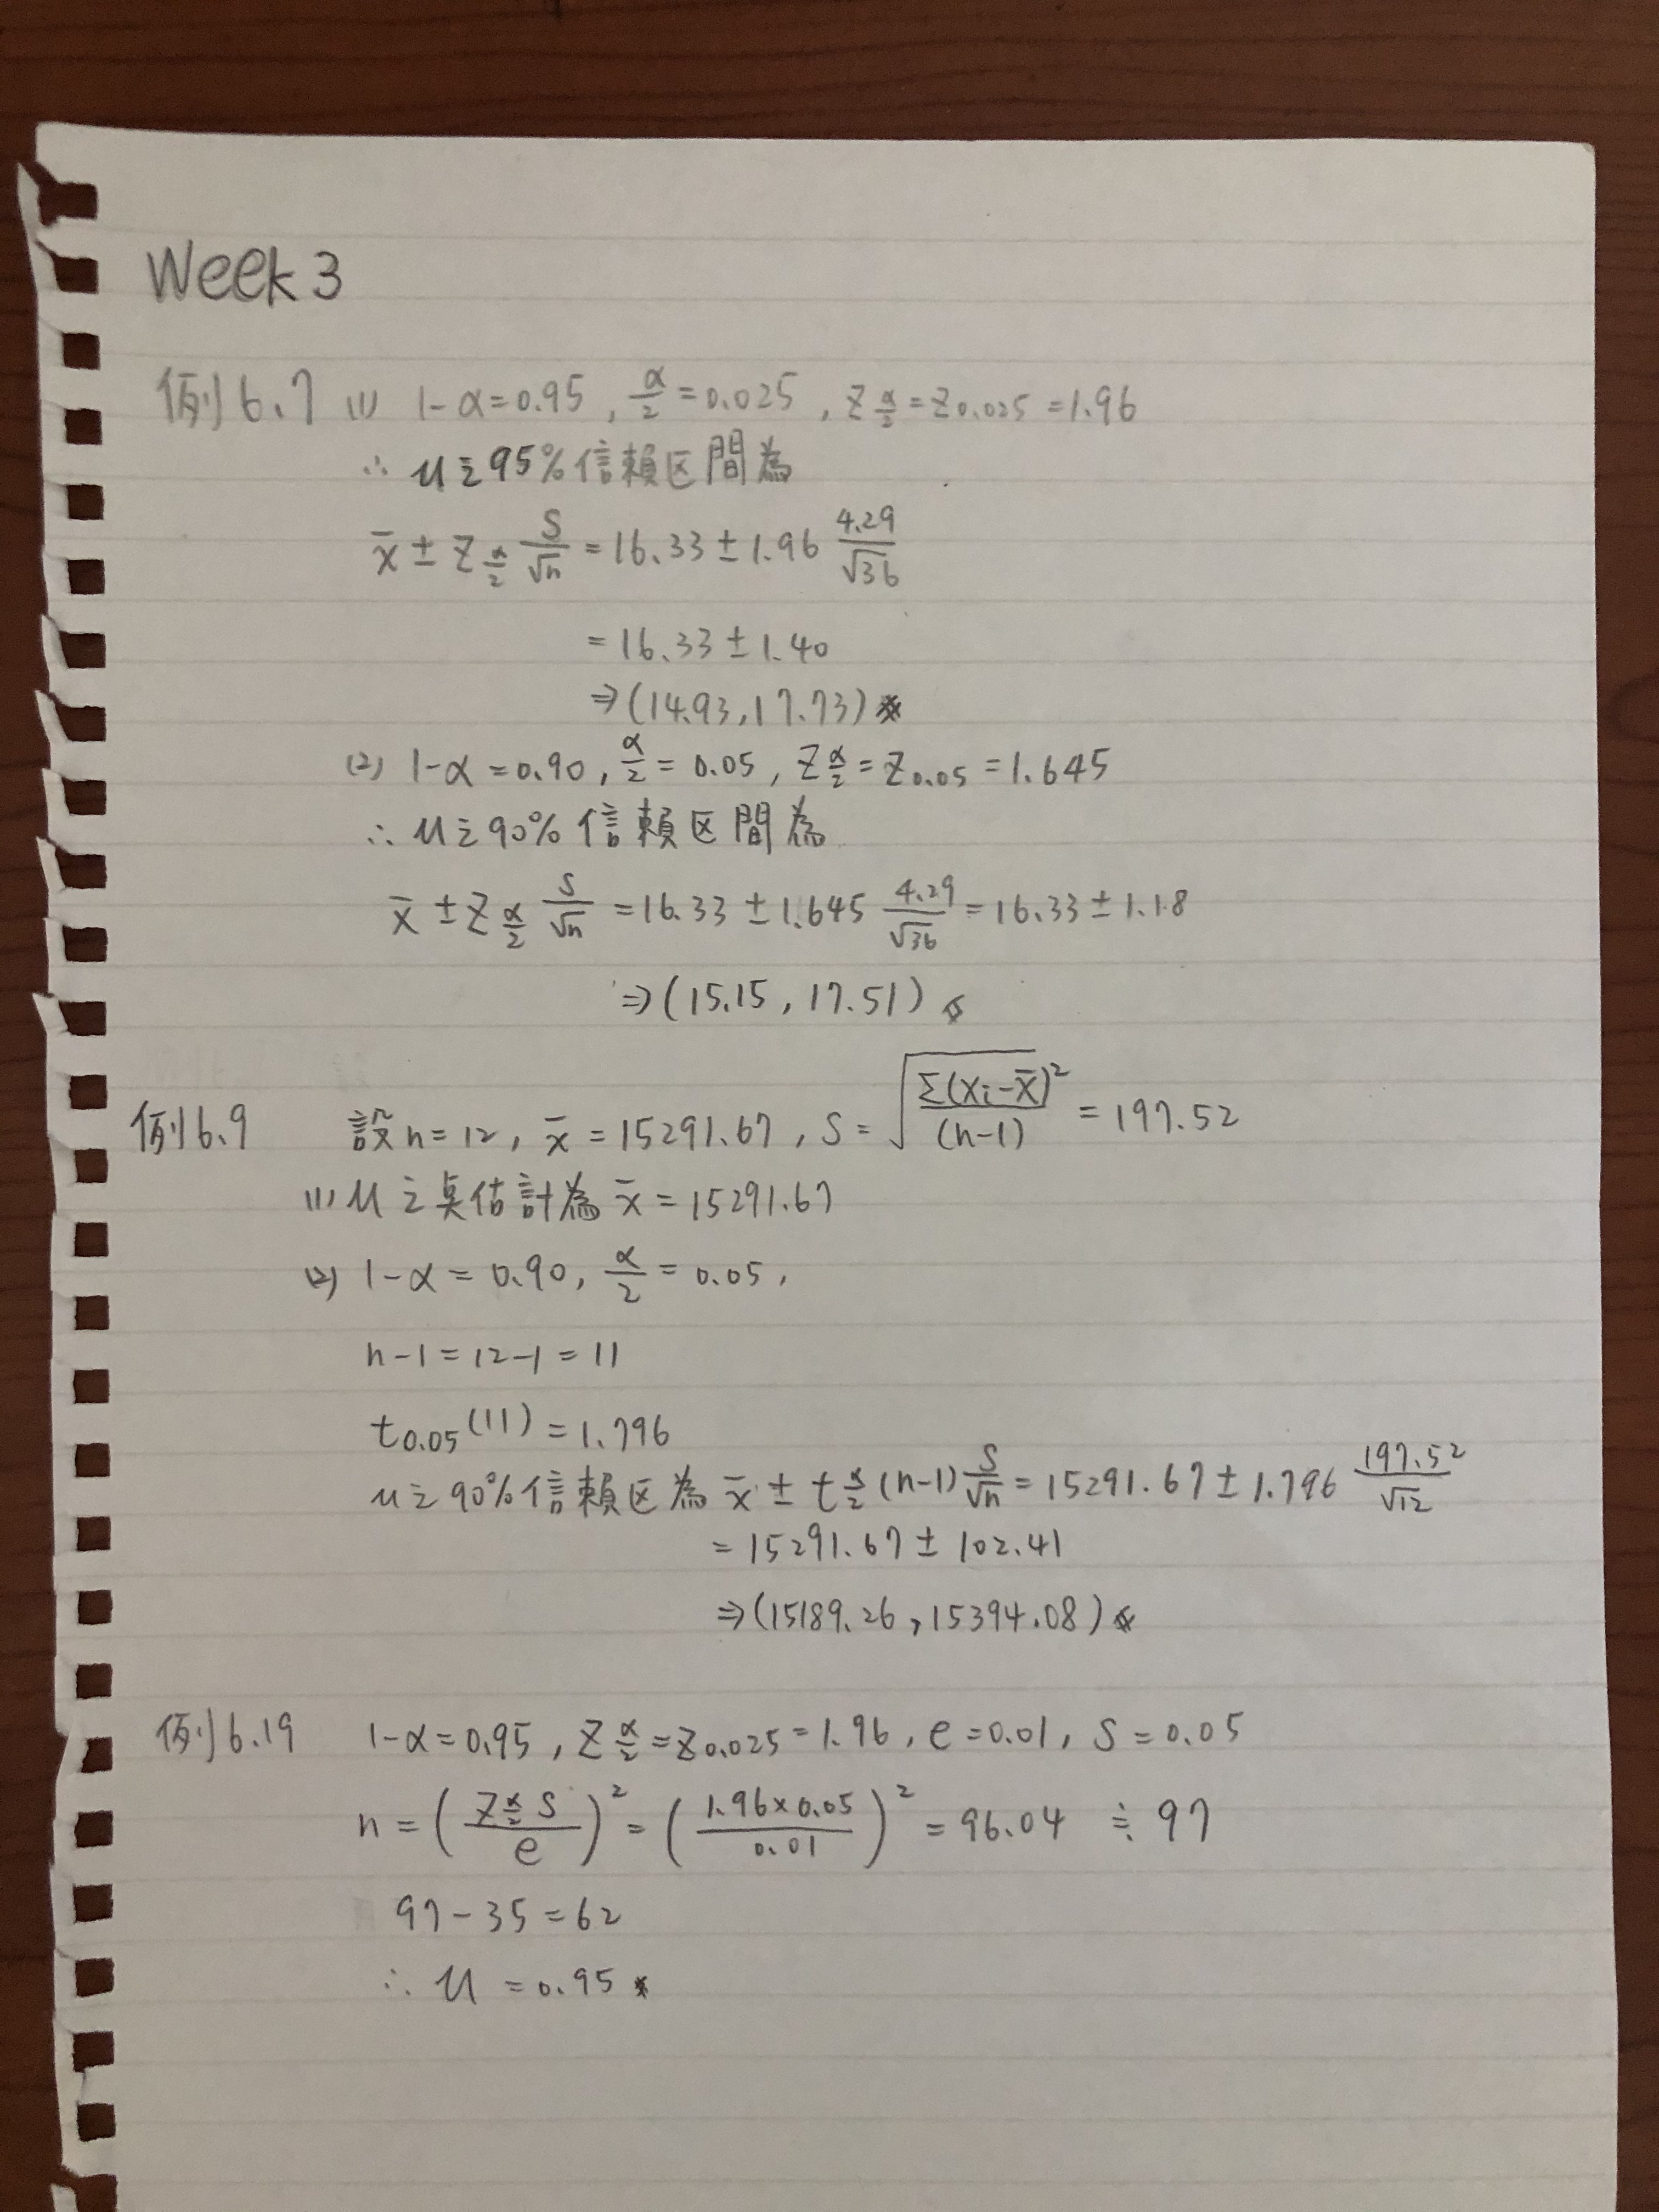 Week 3
例6.7 (1) 1-α=0.95, α/2=0.025, Zα/2=Z0.025=1.96
∴ μ之95%信賴区間為
x̄ ± Zα/2 S/√n = 16.33 ± 1.96 4.29/√36
= 16.33 ± 1.40
⇒(14.93, 17.73)*
(2) 1-α=0.90, α/2=0.05, Zα/2=Z0.05=1.645
∴ μ之90%信賴区間為
x̄ ± Zα/2 S/√n = 16.33 ± 1.645 4.29/√36 = 16.33 ± 1.18
⇒(15.15, 17.51)*
例6.9 設n=12, x̄=15291.67, S=√Σ(xi-x̄)²/(n-1) = 197.52
(1) μ之點估計為 x̄=15291.67
(2) 1-α=0.90, α/2=0.05,
n-1=12-1=11
t0.05(11)=1.796
μ之90%信賴区為 x̄ ± tα/2(n-1)S/√n = 15291.67 ± 1.796 197.52/√12
= 15291.67 ± 102.41
⇒(15189.26, 15394.08)*
例6.19 1-α=0.95, Zα/2=Z0.025=1.96, e=0.01, S=0.05
n=(Zα/2 S/e)²=(1.96×0.05/0.01)²=96.04 ≒ 97
97-35=62
∴ μ=0.95*